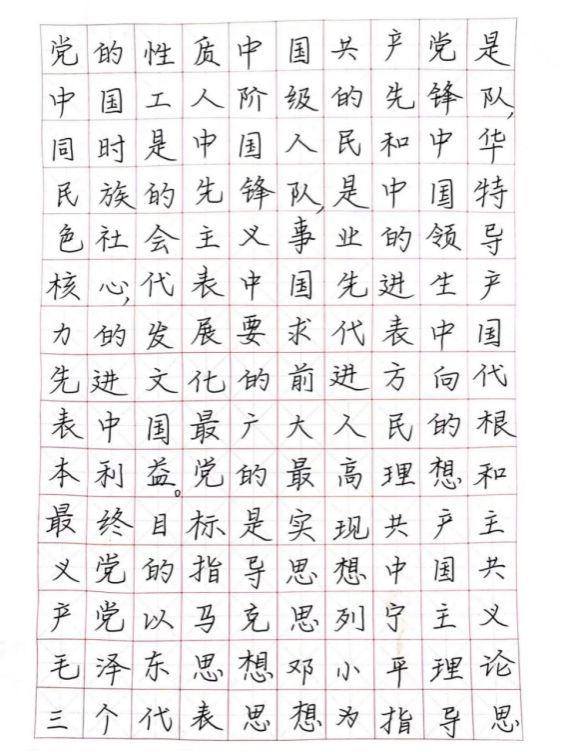 党的性质中国共产党是
中国工人阶级的先锋队,
同时是中国人民和中华
民族的先锋队,是中国特
色社会主义事业的领导
核心,代表中国先进生产
力的发展要求代表中国
先进文化的前进方向代
表中国最广大人民的根
本利益。党的最高理想和
最终目标是实现共产主
义党的指导思想中国共
产党以马克思列宁主义
毛泽东思想邓小平理论
三个代表思想为指导思